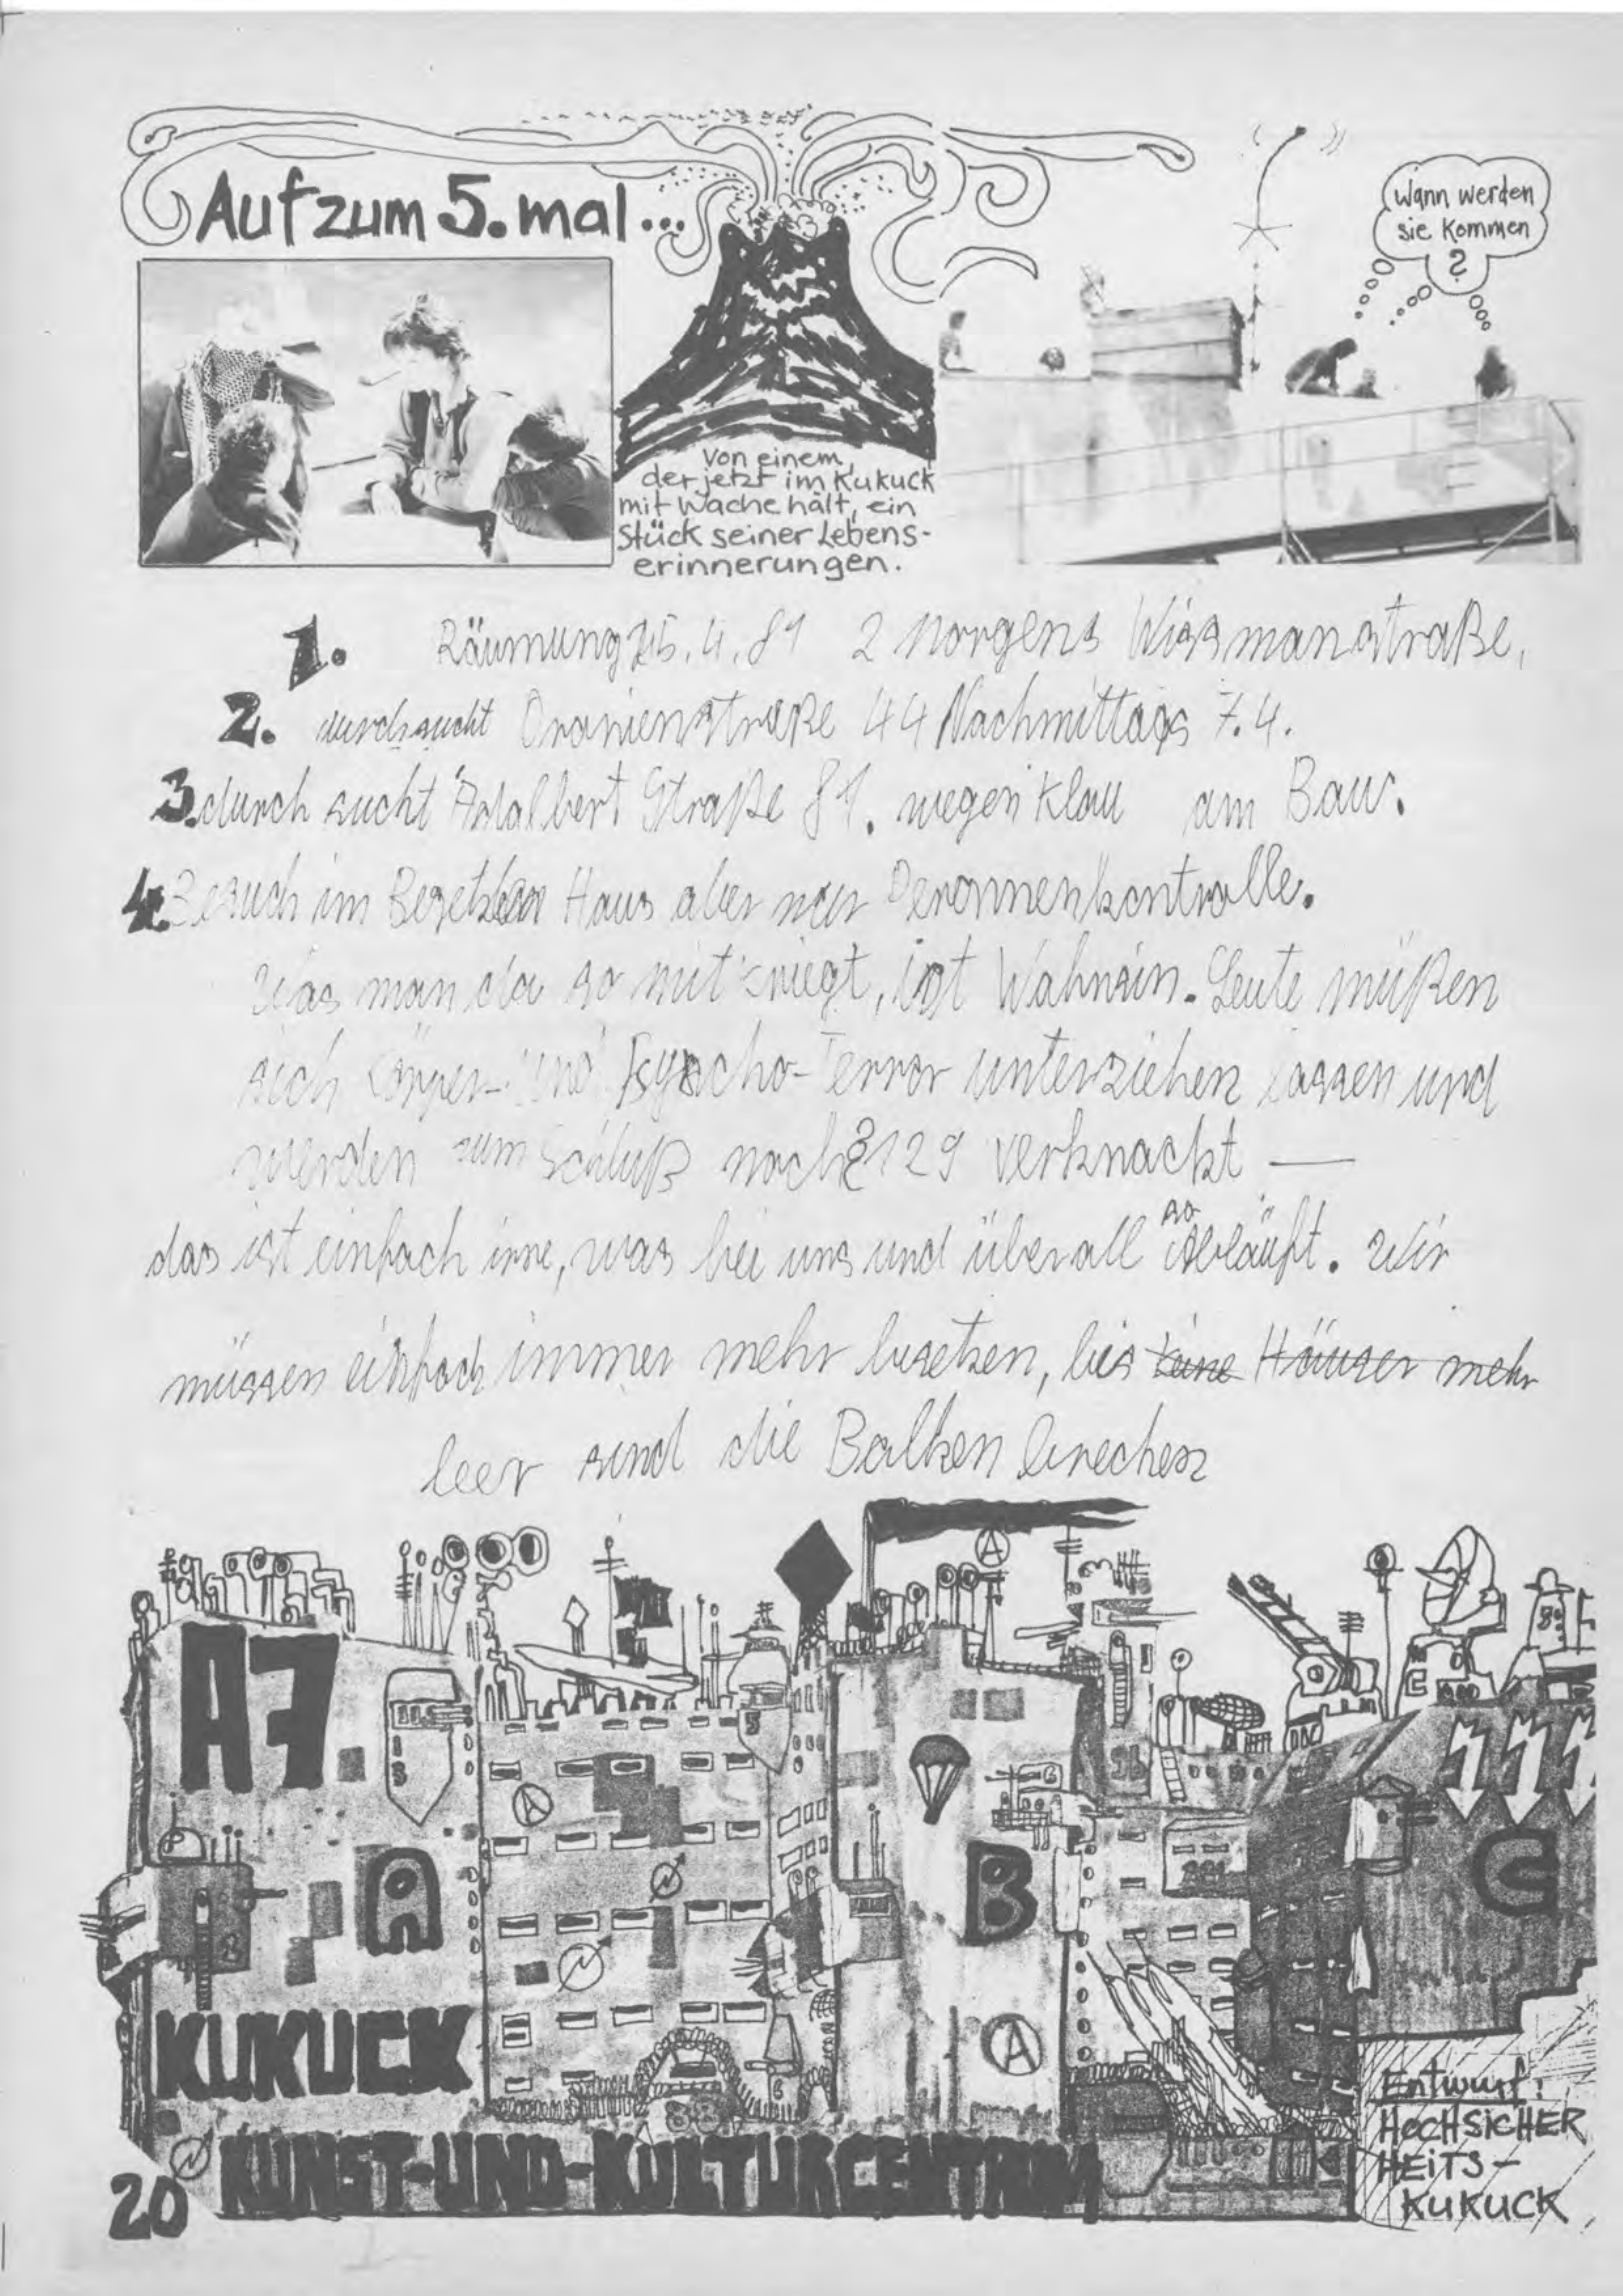 Auf zum 5. mal...
Wann werden
sie kommen
?
Von einem,
der jetzt im Kukuck
mit Wache hält, ein
Stück seiner Lebens-
erinnerungen.
1. Räumung 4. 81 2 Morgens Wissmanstraße,
2. durchsucht Oranienstraße 44 Nachmittags 7.4.
3. durch sucht Adalbert Straße 81. wegen Klau am Bau.
4. Besuch im Besetzten Haus aber nur Personnenkontrolle.
Was man da so mit kriegt, ist Wahnsin. Leute müßen
sich Körper- und Psycho-Terror unterziehen lassen und
werden zum Schluß noch § 129 verknackt —
das ist einfach irre, was bei uns und überall so abläuft. Wir
müssen einfach immer mehr besetzen, bis keine Häuser mehr
leer sind die Balken brechen
A7
A
KUKUCK
B
C
KUNST-UND-KULTURCENTRUM
Entwurf:
HOCHSICHER
HEITS-
KUKUCK
20